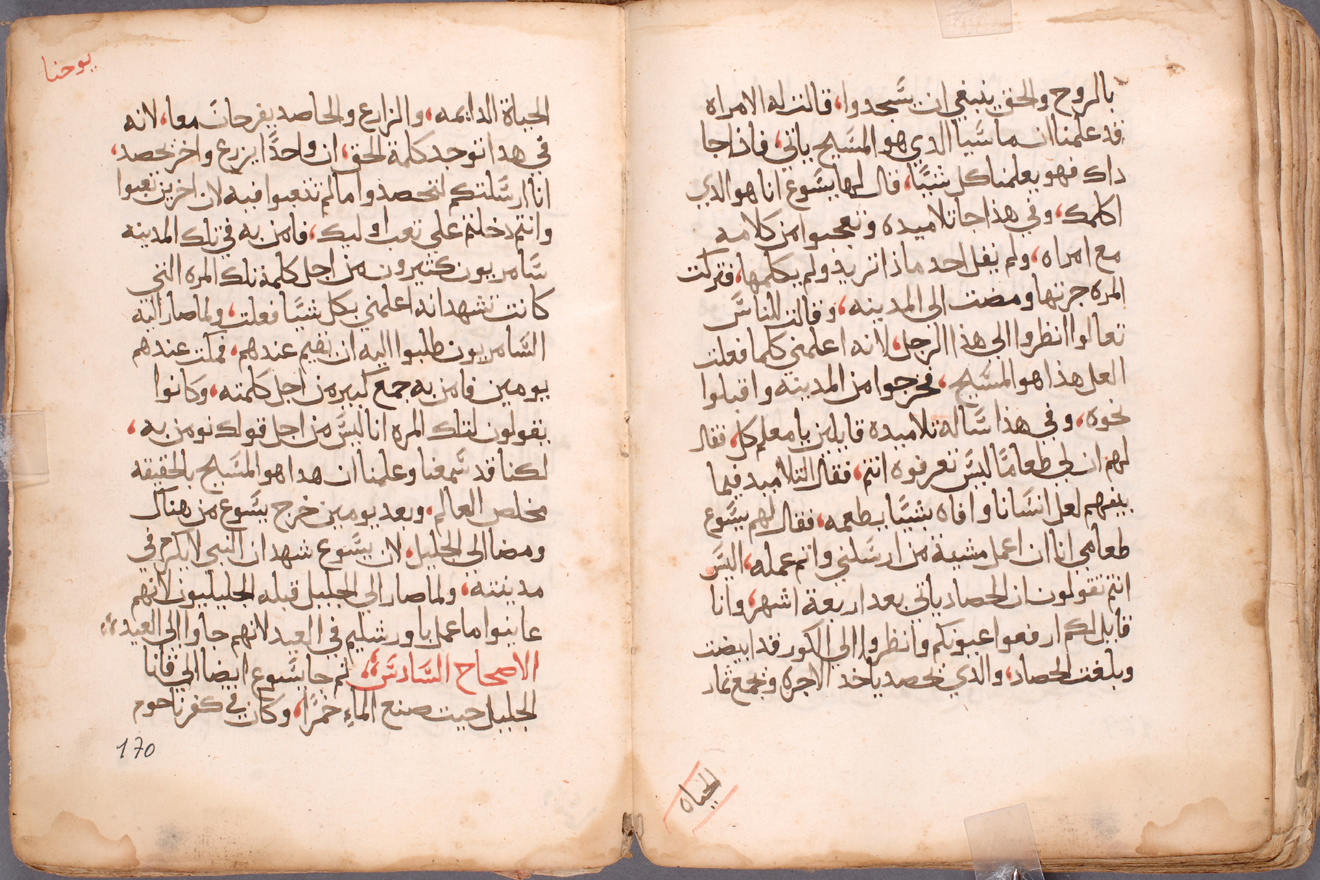 بالروح والحق ينبغي ان يسجدوا، قالت له الامراه
قد علمنا ان ماسيا الدي هو المسيح ياتي، فاذا جا
داك فهو يعلمنا كل شيا، قال لها يسوع انا هو الدي
اكلمك، وفي هذا جا تلاميده وتعجبوا من كلامه
مع امراه، ولم يقل احد ماذا تريد ولم يكلمها، فتركت
المره جرتها ومضت الى المدينه، وقالت للناس
تعالوا انظروا الى هذا الرجل، لانه اعلمني كلما فعلت
العل هذا هو المسيح، فخرجوا من المدينه واقبلوا
نحوه، وفي هذا ساله تلاميده قايلين يا معلم كل، فقال
لهم ان لي طعاما ليس تعرفوه انتم، فقال التلاميد فيما
بينهم لعل انسانا وافاه بشيا يطعمه، فقال لهم يسوع
طعامي انا ان اعمل مشية من ارسلني واتم عمله، اليس
انتم تقولون ان الحصاد ياتي بعد اربعة اشهر، وانا
قايل لكم ارفعوا عيونكم وانظروا الى الكور قد ابيضت
وبلغت الحصاد، والدي يحصد ياخد الاجره ويجمع ثمار
الحياه
يوحنا
الحياة الدايمه، والزارع والحاصد يفرحان معا، لانه
في هدا توجد كلمة الحق، ان واحدا يزرع واخر يحصد،
انا ارسلتكم لتحصدوا ما لم تتعبوا فيه لان اخرين تعبوا
وانتم دخلتم على تعب اوليك، فامن به في تلك المدينه
سامريون كثيرون من اجل كلمة تلك المره التي
كانت تشهد انه اعلمني بكل شيا فعلت، ولما صار اليه
السامريون طلبوا اليه ان يقيم عندهم، فمكث عندهم
يومين فامن به جمع كبيره من اجل كلمته، وكانوا
يقولون لتلك المره انا ليس من اجل قولك نومن به،
لكنا قد سمعنا وعلمنا ان هدا هو المسيح بالحقيقه
مخلص العالم، وبعد يومين خرج يسوع من هناك
ومضا الى الجليل، لان يسوع شهد ان النبي لا يكرم في
مدينته، ولما صار الى الجليل قبله الجليليون لانهم
عاينوا ما عمل باورشليم في العيد لانهم جاوا الى العيد،
الاصحاح السادس، ثم جا يسوع ايضا الى قانا
الجليل حيث صنع الماء خمرا، وكان في كفرناحوم
170